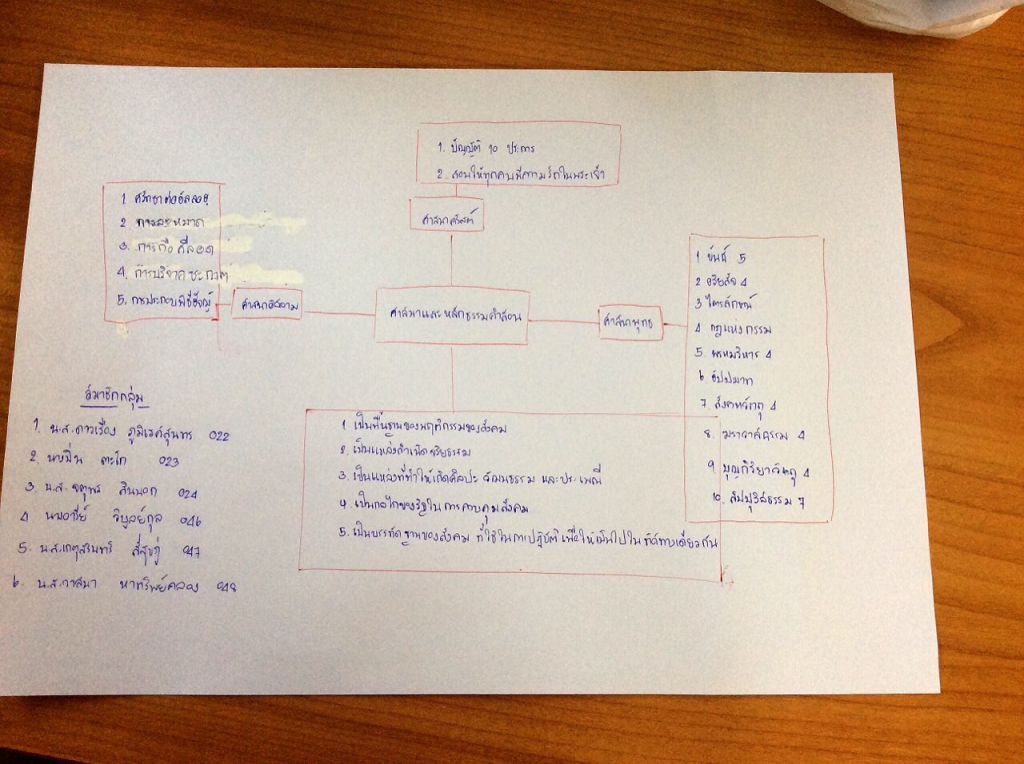 1. บัญญัติ 10 ประการ
2. สอนให้ทุกคนมีความรักในพระเจ้า
ศาสนาคริสต์
1 ศรัทธาต่ออัลลอฮ
2 การละหมาด
3. การถือศีลอด
4. การบริจาคซะกาต
5. การประกอบพิธีฮัจญ์
ศาสนาอิสลาม
ศาสนาและหลักธรรมคำสอน
ศาสนาพุทธ
1 ขันธ์ 5
2 อริยสัจ 4
3 ไตรลักษณ์
4 กฎแห่งกรรม
5. พรหมวิหาร 4
6 อัปปมาท
7. สังคหวัตถุ 4
8. ฆราวาสธรรม 4
9 บุญกิริยาวัตถุ 4
10. สัปปุริสธรรม 7
1 เป็นพื้นฐานของพฤติกรรมของสังคม
2. เป็นแหล่งกำเนิดจริยธรรม
3. เป็นแหล่งที่ทำให้เกิดศิลปะ วัฒนธรรม และประเพณี
4. เป็นกลไกของรัฐในการควบคุมสังคม
5. เป็นบรรทัดฐานของสังคม ที่ใช้ในการปฏิบัติ เพื่อให้เป็นไปในทิศทางเดียวกัน
สมาชิกกลุ่ม
1. น.ส.ดาวเรือง 022
2. 023
3. น.ส. 024
4 วิบูลย์กุล 046
5. น.ส. 047
6. น.ส.วาสนา หาทรัพย์คลอง 048